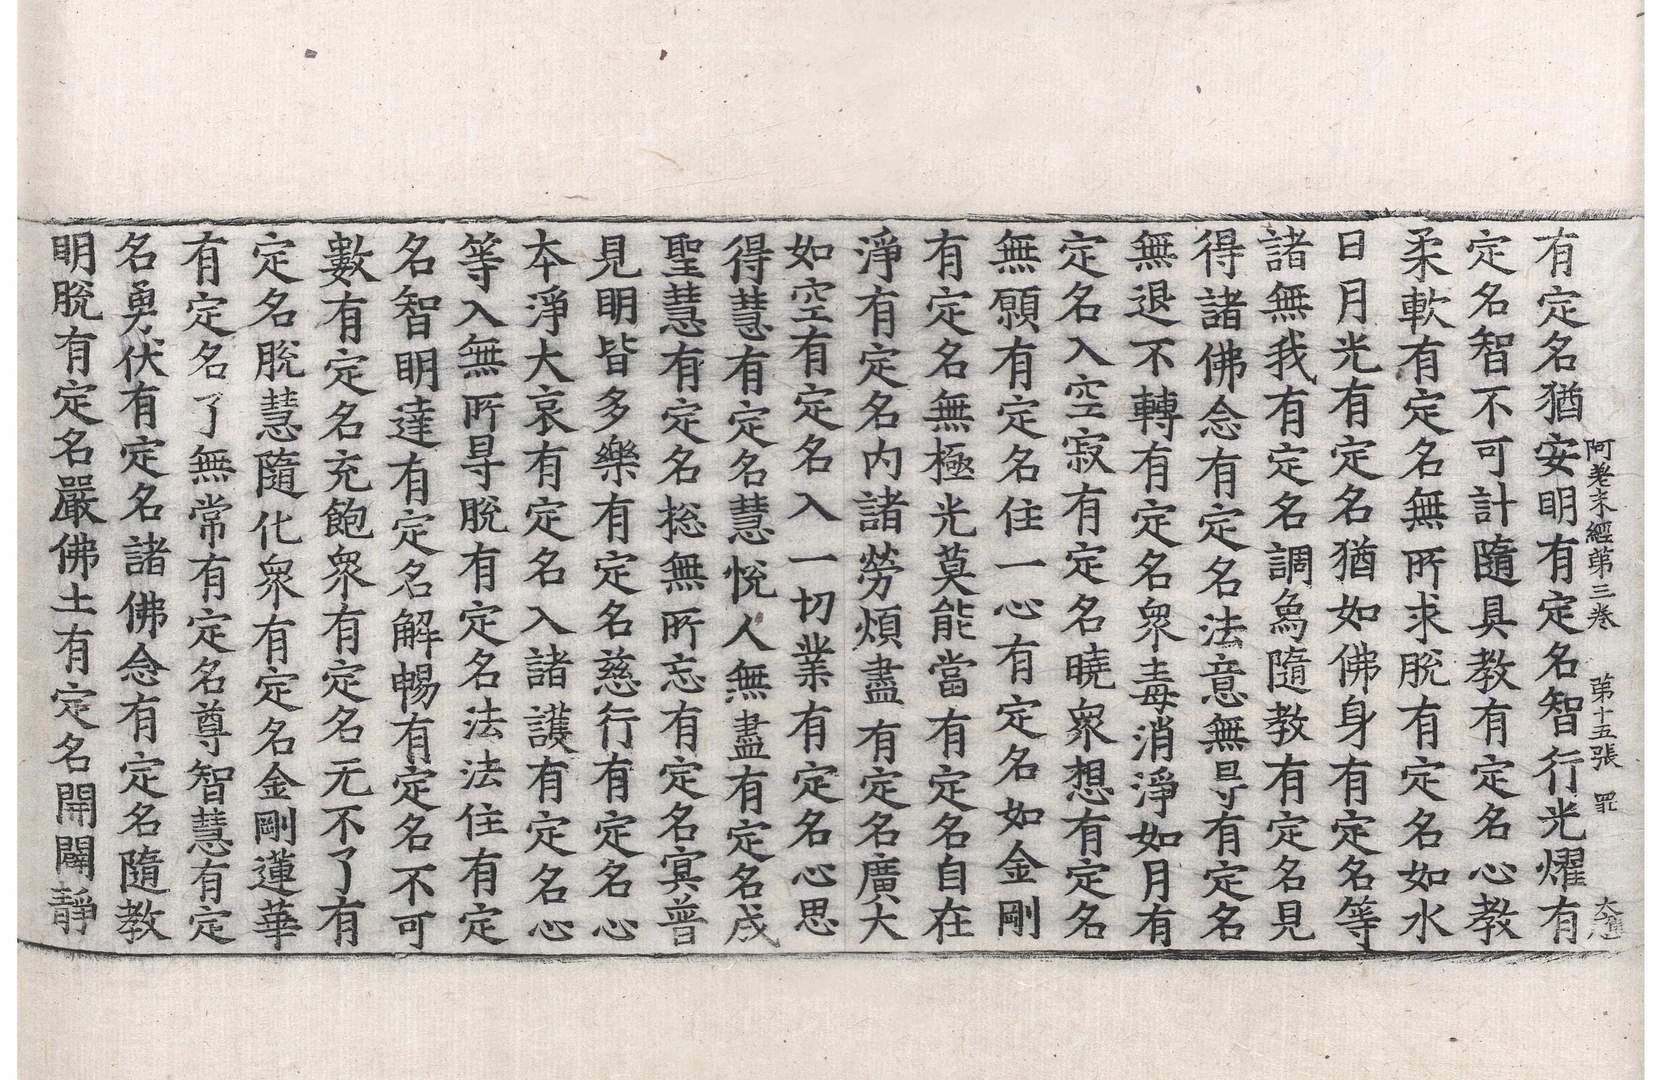 阿差末經第三卷　第十五張　罪
有定名猶安明有定名智行光燿有
定名智不可計隨具教有定名心教
柔軟有定名無所求脫有定名如水
日月光有定名猶如佛身有定名等
諸無我有定名調爲隨教有定名見
得諸佛念有定名法意無㝵有定名
無退不轉有定名衆毒消淨如月有
定名入空寂有定名曉衆想有定名
無願有定名住一心有定名如金剛
有定名無極光莫能當有定名自在
淨有定名內諸勞煩盡有定名廣大
如空有定名入一切業有定名心思
得慧有定名慧悅人無盡有定名成
聖慧有定名捴無所忘有定名冥普
見明皆多樂有定名慈行有定名心
本淨大哀有定名入諸護有定名心
等入無所㝵脫有定名法法住有定
名智明達有定名解暢有定名不可
數有定名充飽衆有定名无不了有
定名脫慧隨化衆有定名金剛蓮華
有定名了無常有定名尊智慧有定
名勇伏有定名諸佛念有定名隨教
明脫有定名嚴佛土有定名開闢靜